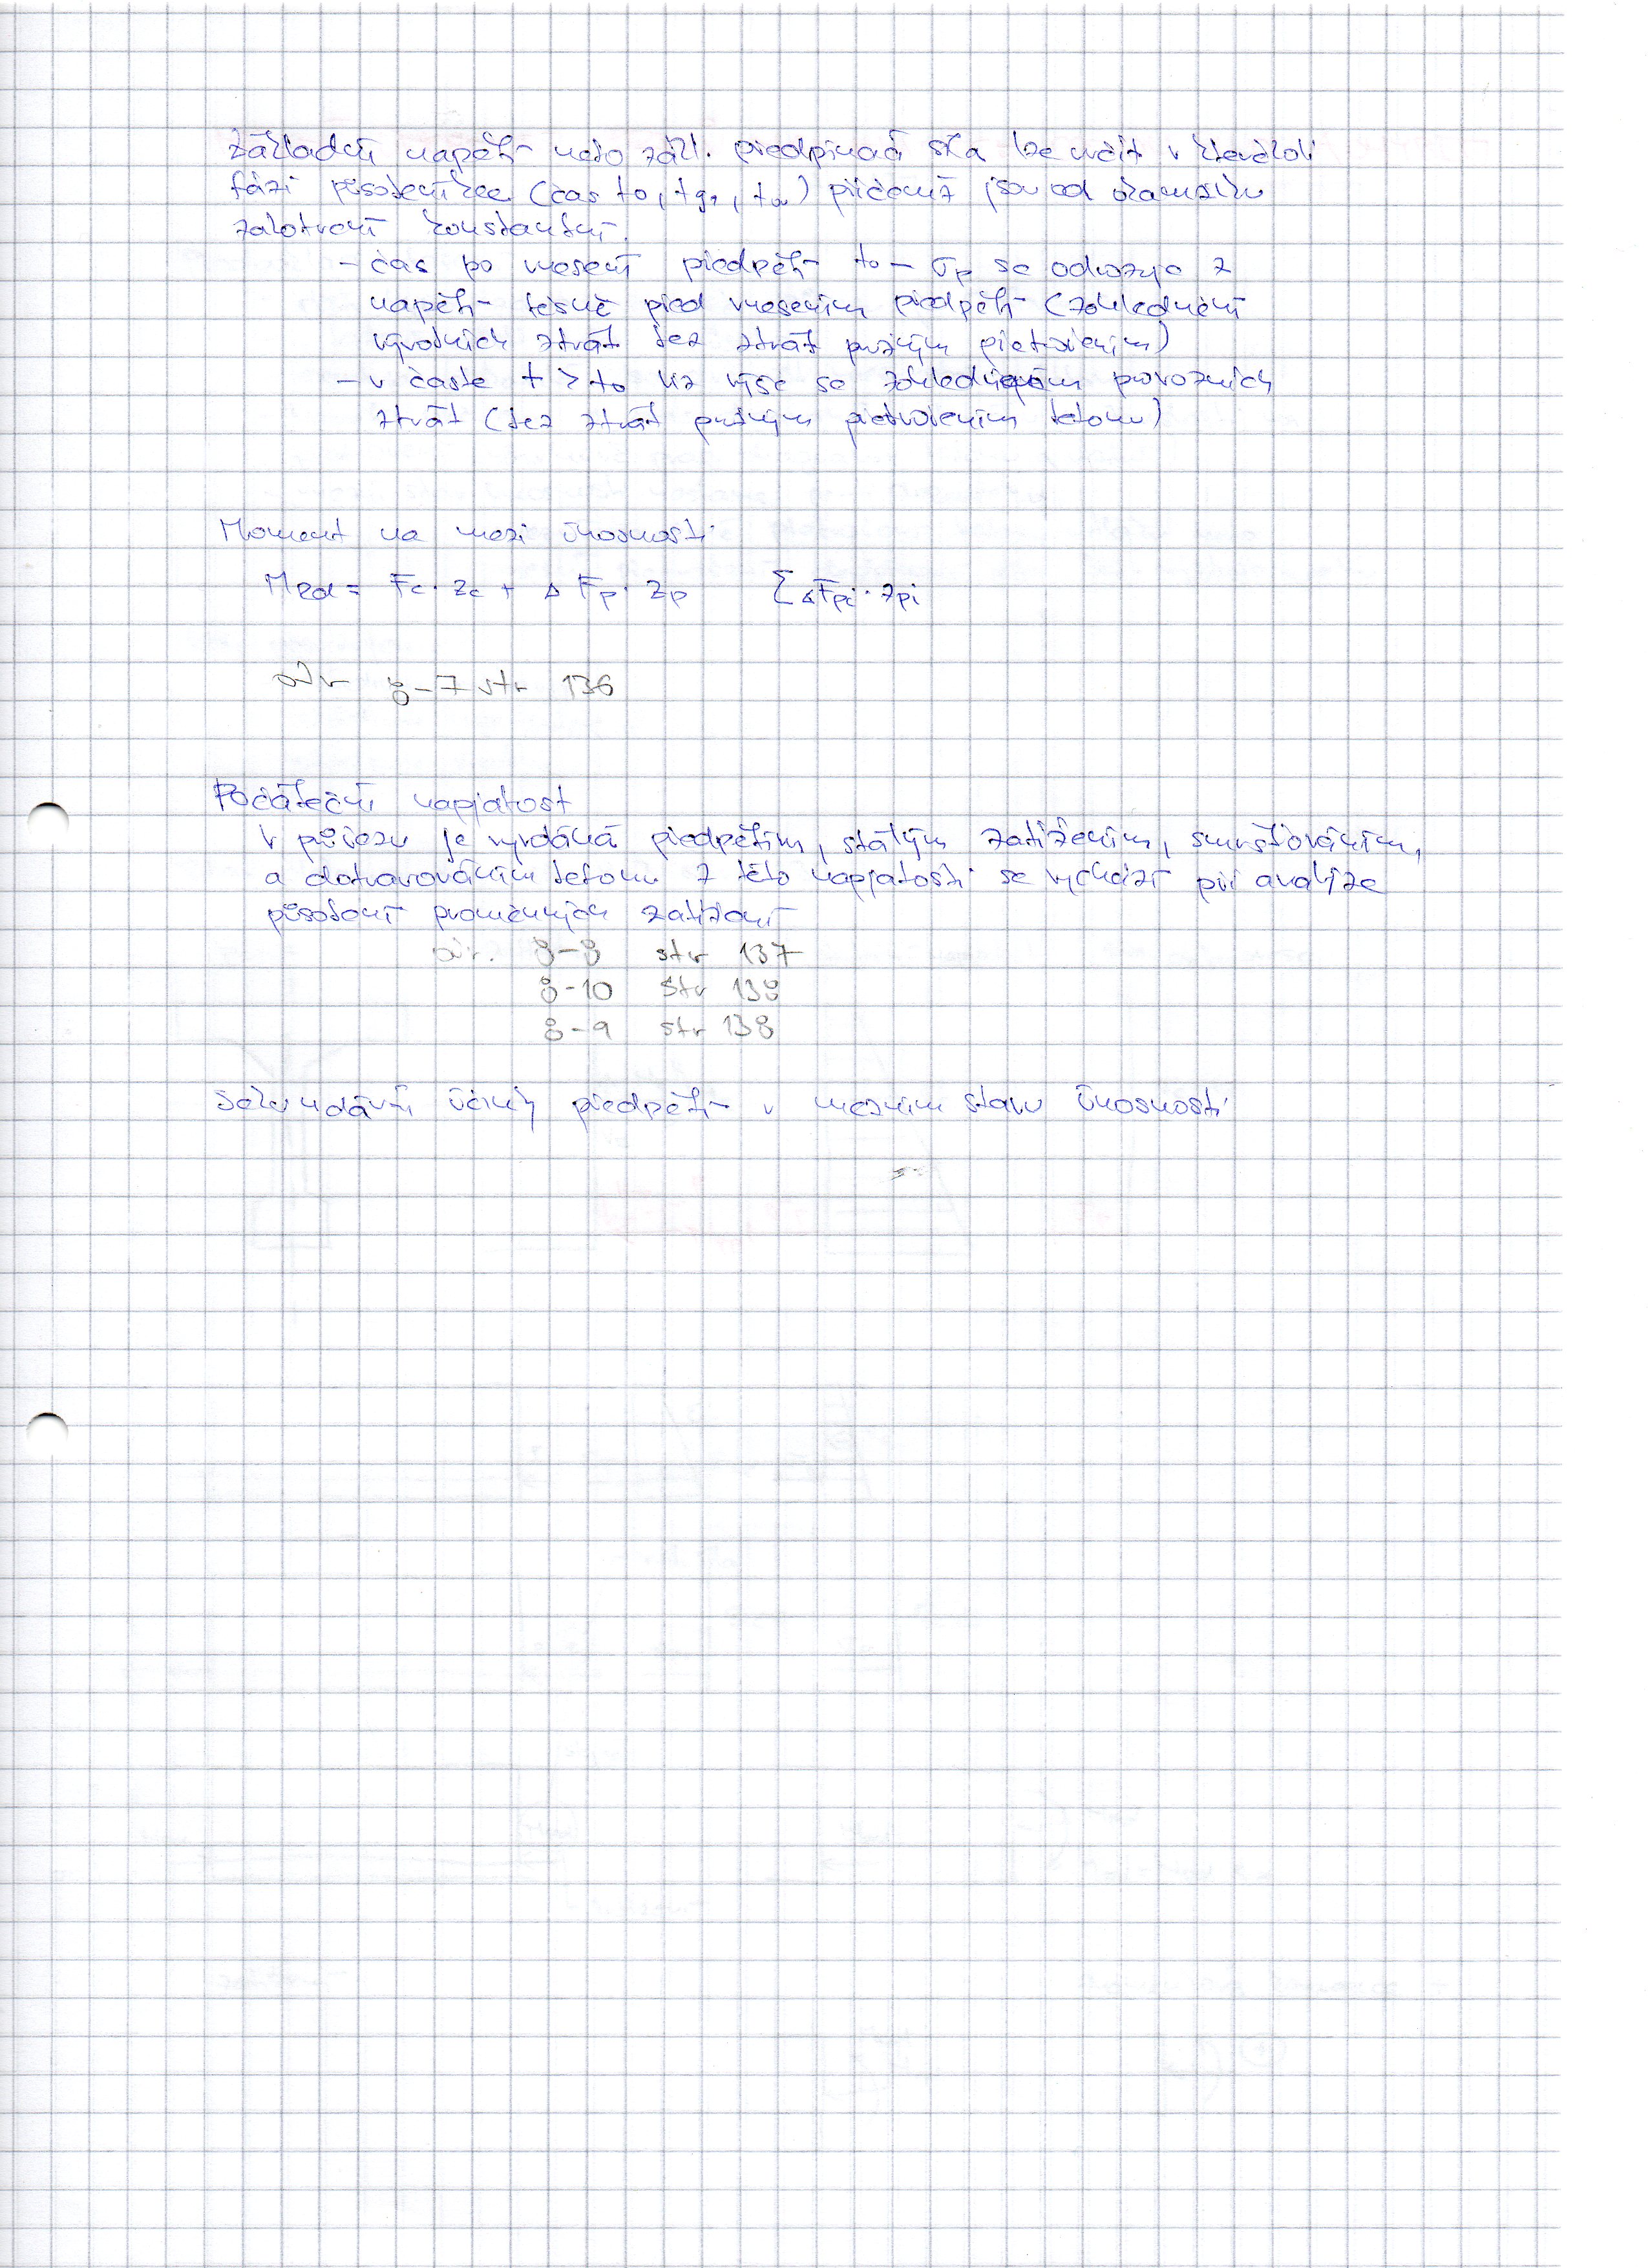 Základní napětí nebo zákl. předpínací síla lze určit v kterékoli
fázi působení kce (čas t0, tg1, t∞) přičemž jsou od okamžiku
zabetonování konstantní.
- čas po vnesení předpětí t0 - σp se odvozuje z
napětí těsně před vnesením předpětí (zohlednění
výrobních ztrát bez ztrát pružným přetvořením)
- v čase t > t0 viz výše se zohledněním provozních
ztrát (bez ztrát pružným přetvořením betonu)
Moment na mezi únosnosti
MRd = Fc · zc + Δ Fp · zp ΣΔFpi · zpi
obr 8-7 str 136
Počáteční napjatost
v průřezu je vyvolána předpětím, stálým zatížením, smršťováním,
a dotvarováním betonu z této napjatosti se vychází při analýze
působení proměnných zatížení
obr. 8-8 str 137
8-10 str 138
8-9 str 138
Sekundární účinky předpětí v mezním stavu únosnosti